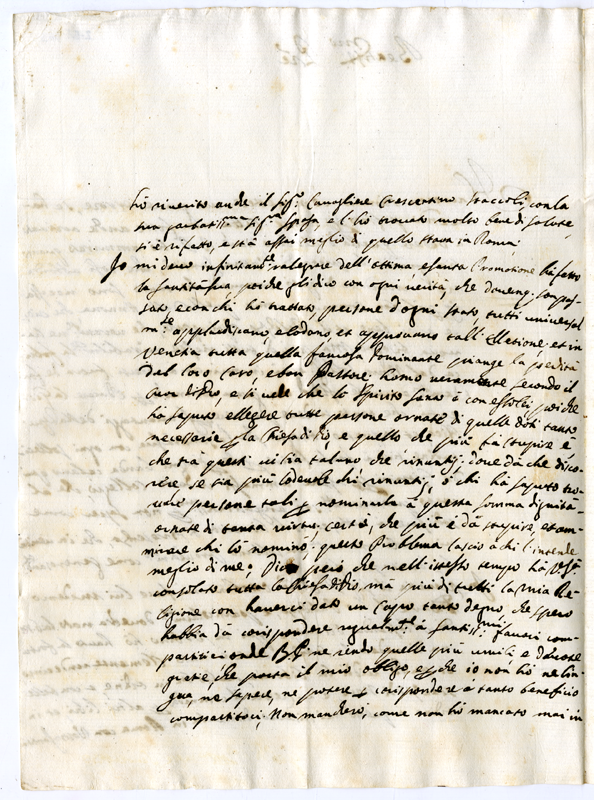 hò riverito anche il Sig.r Cavagliere Crescentino Staccoli, con la
sua garbatiss.ma Sig.ra Sposa, e l'hò trovato molto bene di salute
si è rifatto, e stà assai meglio di quello stava in Roma;
Io mi devo infinitam.te ralegrare dell'ottima, e santa Promotione hà fatto
la Santità sua, poiche gli dico con ogni verità, che dovunq. son pas-
sato, e con chi hò trattato, persone d'ogni stato tutti universal
m.te applaudiscano e lodono, et approvano tall'Elletione, et in
Venetia tutta quella famosa Dominante piange la perdita
dal loro caro e bon Pastore homo veramente secondo il
Cuor di Dio, e si vede che lo Spirito Santo è con esso lei poiche
hà saputo ellegere tutte persone ornate di quelle doti tanto
necessarie p la Chiesa di Dio, e quello che più fà stupire è
che frà questi vi sia taluno che rinuntij; dove dà che disco-
rere se sia più lodevole chi rinuntij, ò chi hà saputo tro-
vare persone tali p nominarle à questa somma dignità
ornate di tanta virtù. certo, che più è dà stupire, et am-
mirare chi lò nominò: questo Problema lascio à chi l'intende
meglio di me; Dico però che nell'istesso tempo hà V. S.tà
consolato tutta la Chiesa di Dio, mà più di tutti la mia Re-
ligione con haverci dato un Capo tanto degno che spero
habbia dà corispondere ugualm.te à santiss.mi favori com-
partiti onde B. P. ne rendo quelle più umili e devote
gratie, che porta il mio obligo, e p che io non hò ne lin-
gua, ne sapere, ne potere p corispondere à tanto beneficio
compartitoci, Non mancherò, come non hò mancato mai in